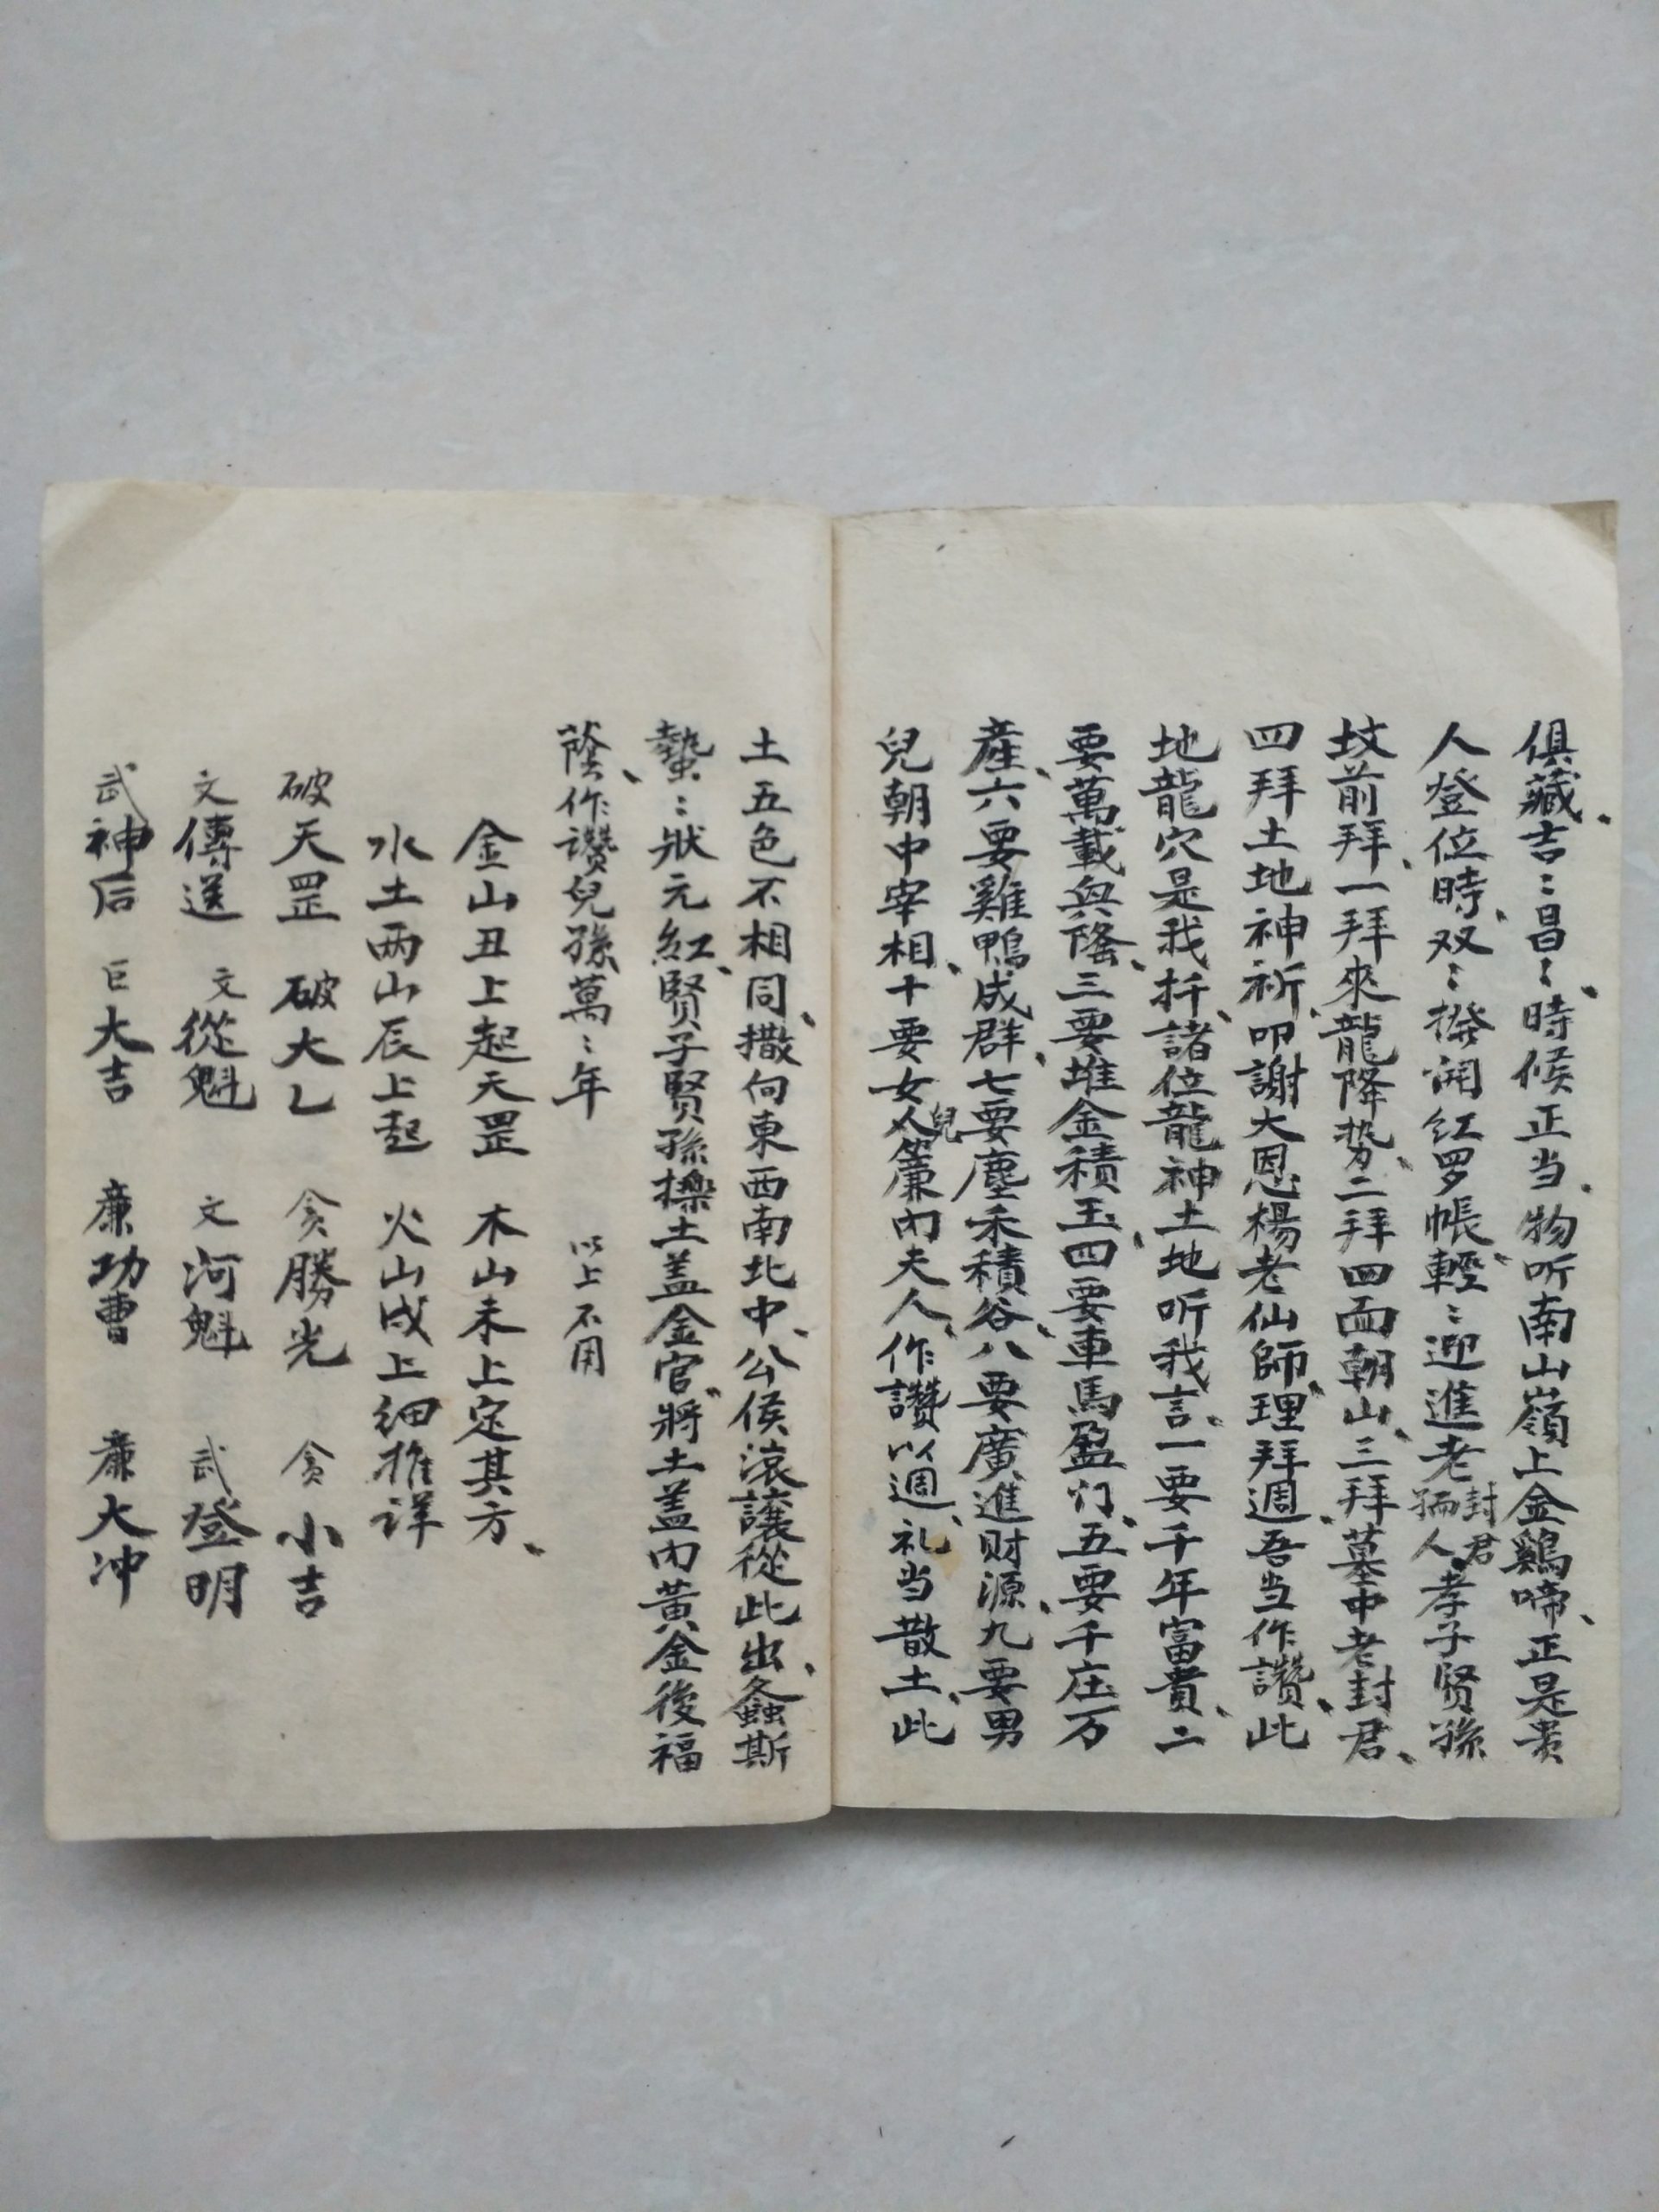 俱藏、吉〻昌〻、時候正当、物听南山嶺上金鷄啼、正是貴
人登位時、双〻撥開红罗帳、輕〻迎進老封君孺人、孝子贤孫
坟前拜、一拜來龍降势、二拜四面朝山、三拜墓中老封君、
四拜土地神祈、叩謝大恩楊老仙師、理拜週、吾当作讚、此
地龍穴是我扦、諸位龍神土地听我言、一要千年富貴、二
要萬載興隆、三要堆金積玉、四要車馬盈门、五要千庄万
產、六要雞鴨成群、七要塵禾積谷、八要廣進财源、九要男
兒朝中宰相、十要女兒簾内夫人、作讚以週、礼当散土、此
土五色不相同、撒向東西南北中、公侯滾讓從此出、螽斯
蟄〻狀元紅、賢子賢孫擽土盖金官、將土盖内黄金後福
蔭、作讚兒孫萬〻年 以上不用
金山丑上起天罡 木山未上定其方、
水土两山辰上起 火山戌上细推详
破天罡 破太乙 贪勝光 贪小吉
文傳送 文從魁 文河魁 武登明
武神后 巨大吉 廉功曹 廉大冲